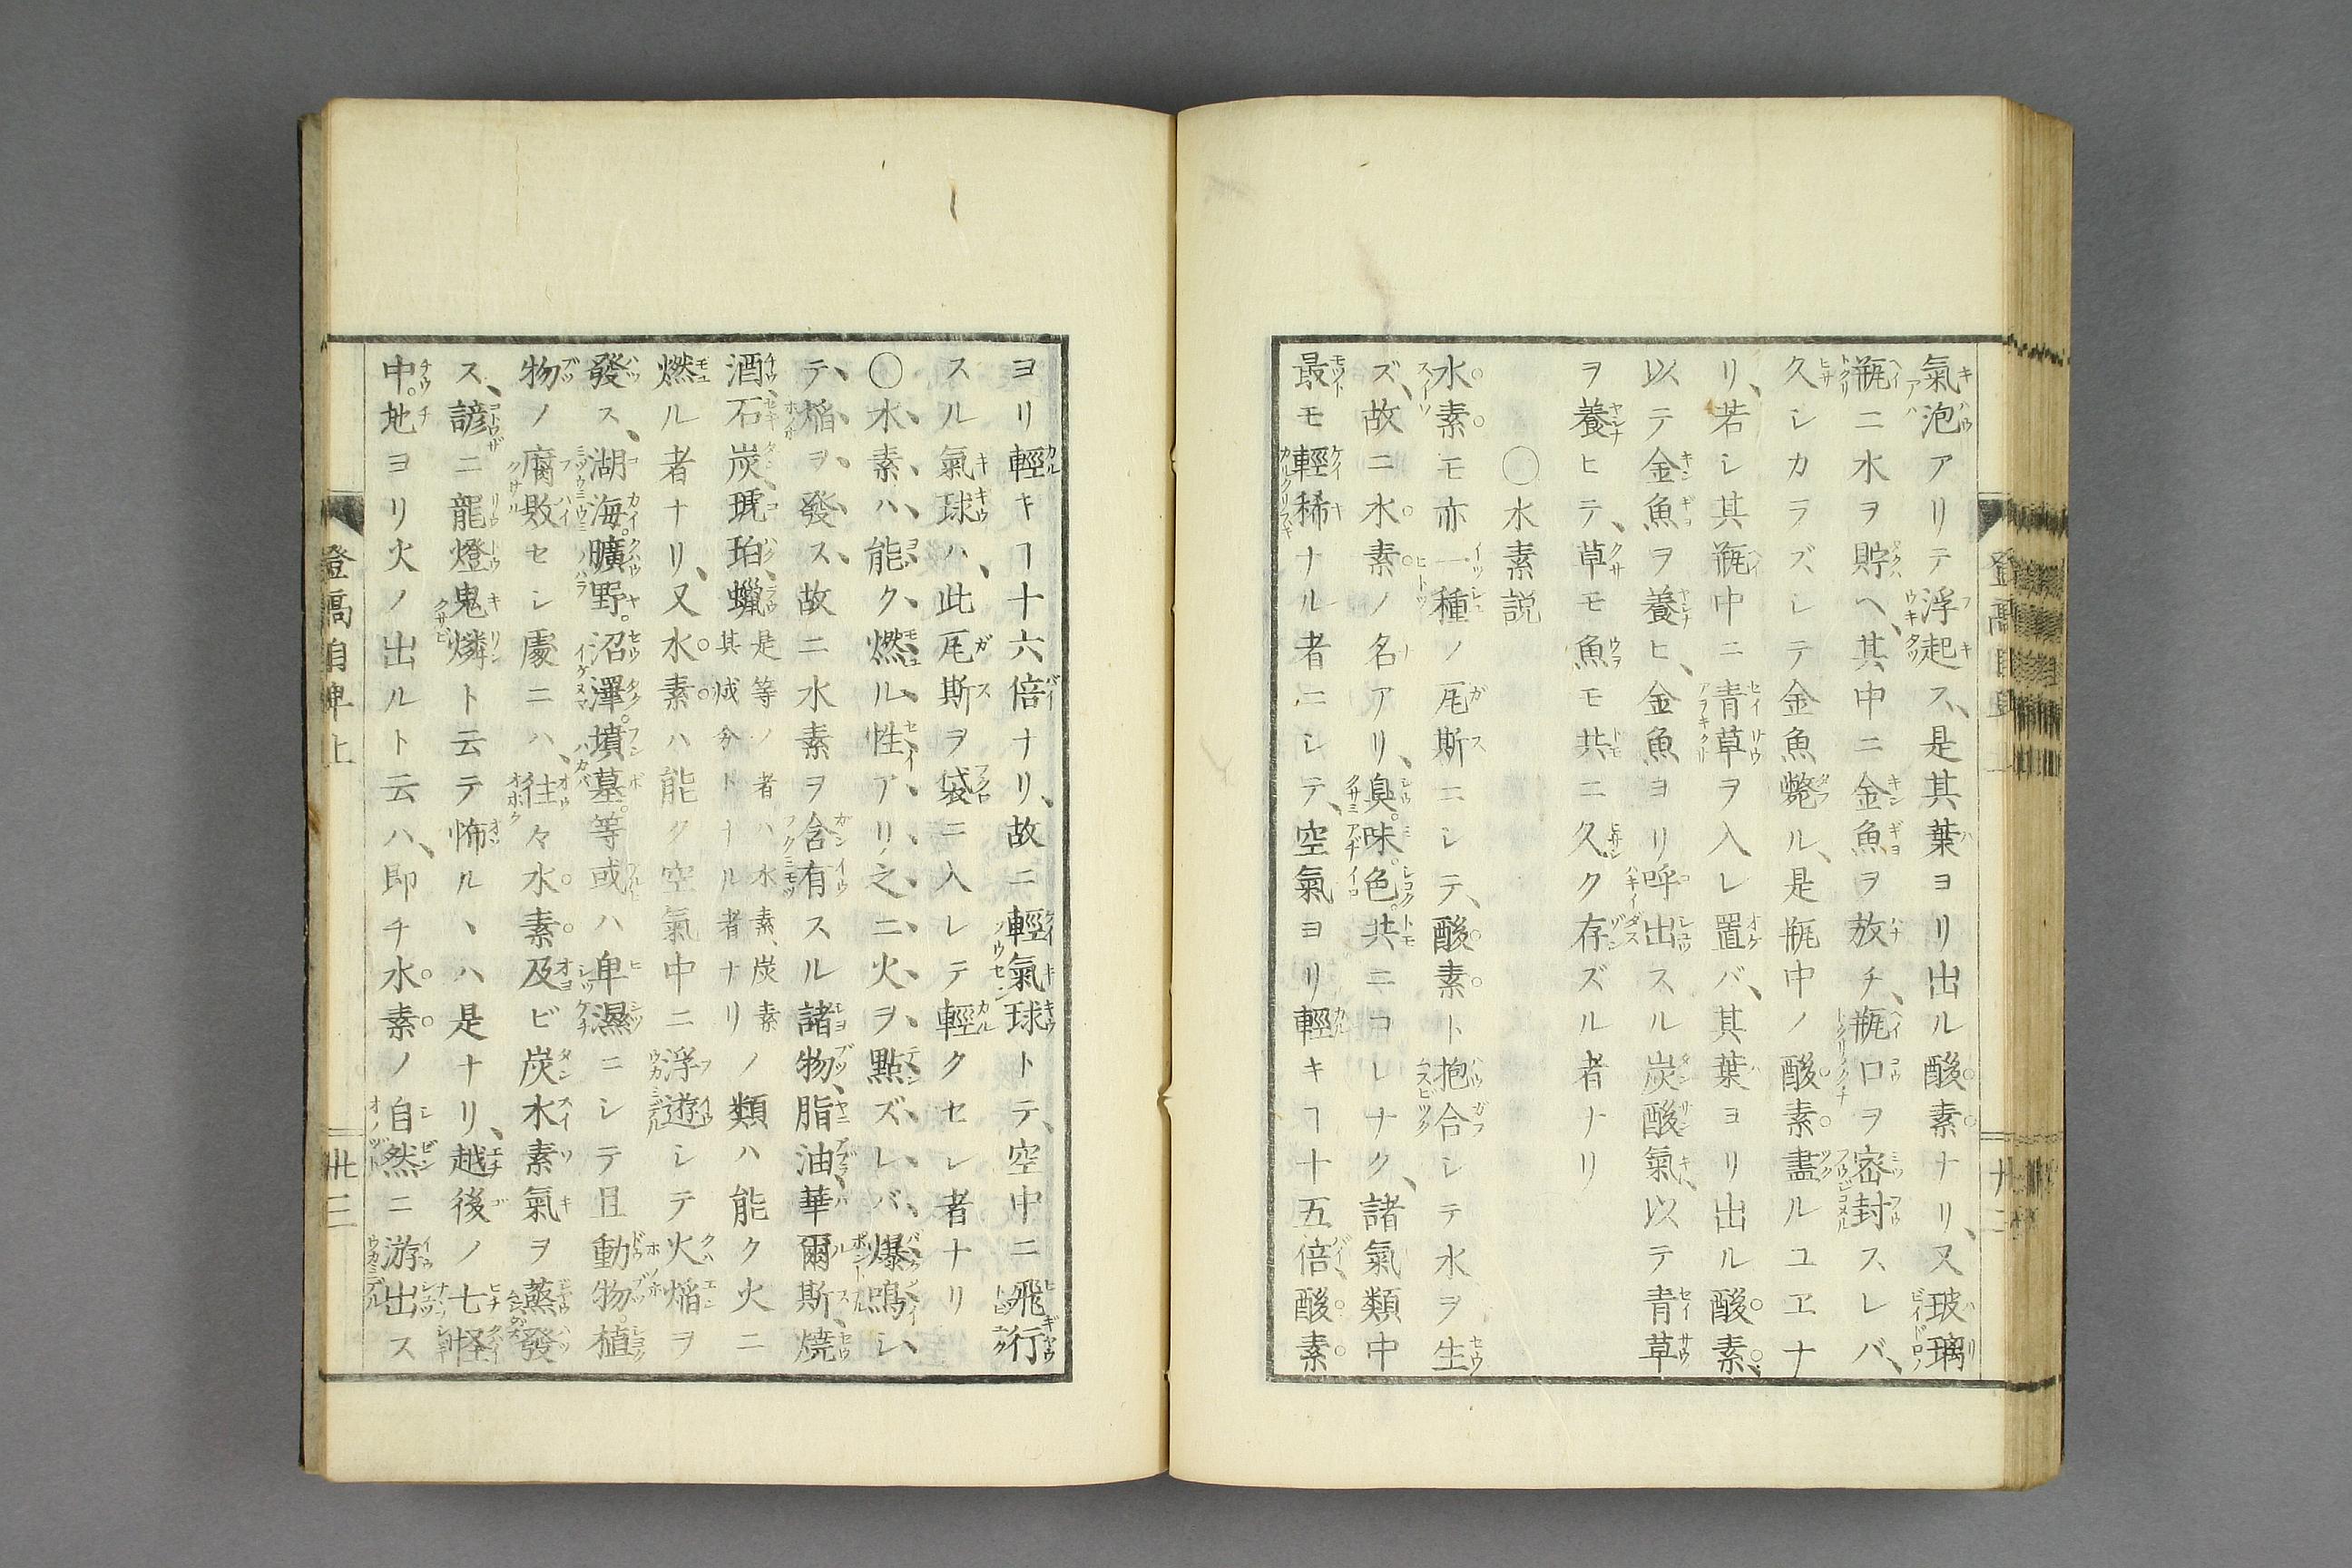 氣泡アリテ浮起ス、是其葉ヨリ出ル酸素ナリ、又玻璃
瓶ニ水ヲ貯ヘ、其中ニ金魚ヲ放チ、瓶口ヲ密封スレバ、
久シカラズシテ金魚斃ル、是瓶中ノ酸素盡ルユヱナ
リ、若シ其瓶中ニ青草ヲ入レ置バ、其葉ヨリ出ル酸素、
以テ金魚ヲ養ヒ、金魚ヨリ呼出スル炭酸氣、以テ青草
ヲ養ヒテ、草モ魚モ共ニ久ク存ズル者ナリ
〇水素説
水素モ亦一種ノ瓦斯ニシテ、酸素ト抱合シテ水ヲ生
ズ、故ニ水素ノ名アリ、臭。味。色。共ニコレナク、諸氣類中
最モ輕稀ナル者ニシテ、空氣ヨリ輕キヿ十五倍、酸素
ヨリ輕キヿ十六倍ナリ、故ニ輕氣球トテ、空中ニ飛行
スル氣球ハ、此瓦斯ヲ袋ニ入レテ輕クセシ者ナリ
〇水素ハ能ク燃ル性アリ、之ニ火ヲ點ズレバ、爆鳴シ
テ、焔ヲ發ス、故ニ水素ヲ含有スル諸物、脂油、華爾斯、燒
酒、石炭、琥珀、蠟是等ノ者ハ水素、炭素其成分トナル者ナリノ類ハ能ク火ニ
燃ル者ナリ、又水素ハ能ク空氣中ニ浮遊シテ火焔ヲ
發ス、湖海。曠野。沼澤。墳墓。等或ハ卑濕ニシテ且動物。植
物ノ腐敗セシ處ニハ、往々水素及ビ炭水素氣ヲ蒸發
ス、諺ニ龍燈鬼燐ト云テ怖ルヽハ是ナリ、越後ノ七怪
中。地ヨリ火ノ出ルト云ハ、即チ水素ノ自然ニ游出ス
登高自卑上
卅三